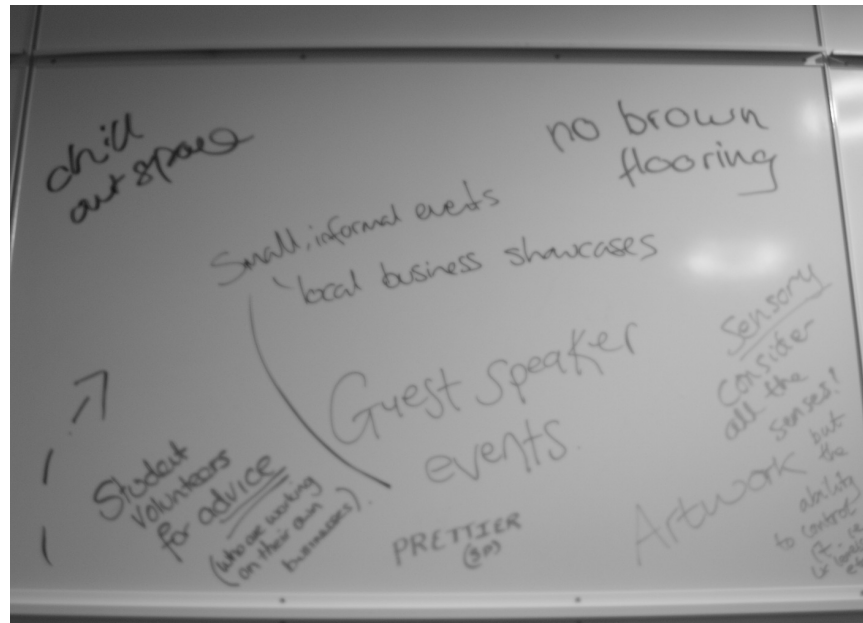 chill
out space
no brown
flooring
Small, informal events
local business showcases
Guest speaker
events.
Sensory
Consider
all the
senses!
but
the
ability
to control
Artwork
Student
volunteers
for advice
(who are working
on their own
businesses).
PRETTIER